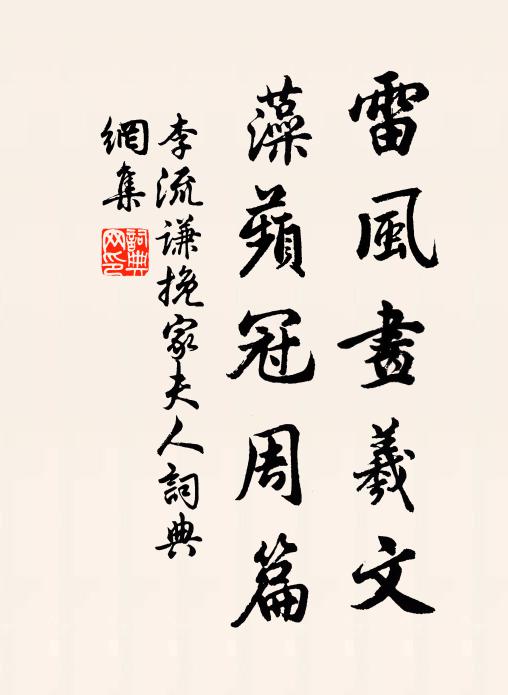 雷風畫羲文
藻蘋冠周篇
李流谦挽家夫人詞典
網集
詞典網印